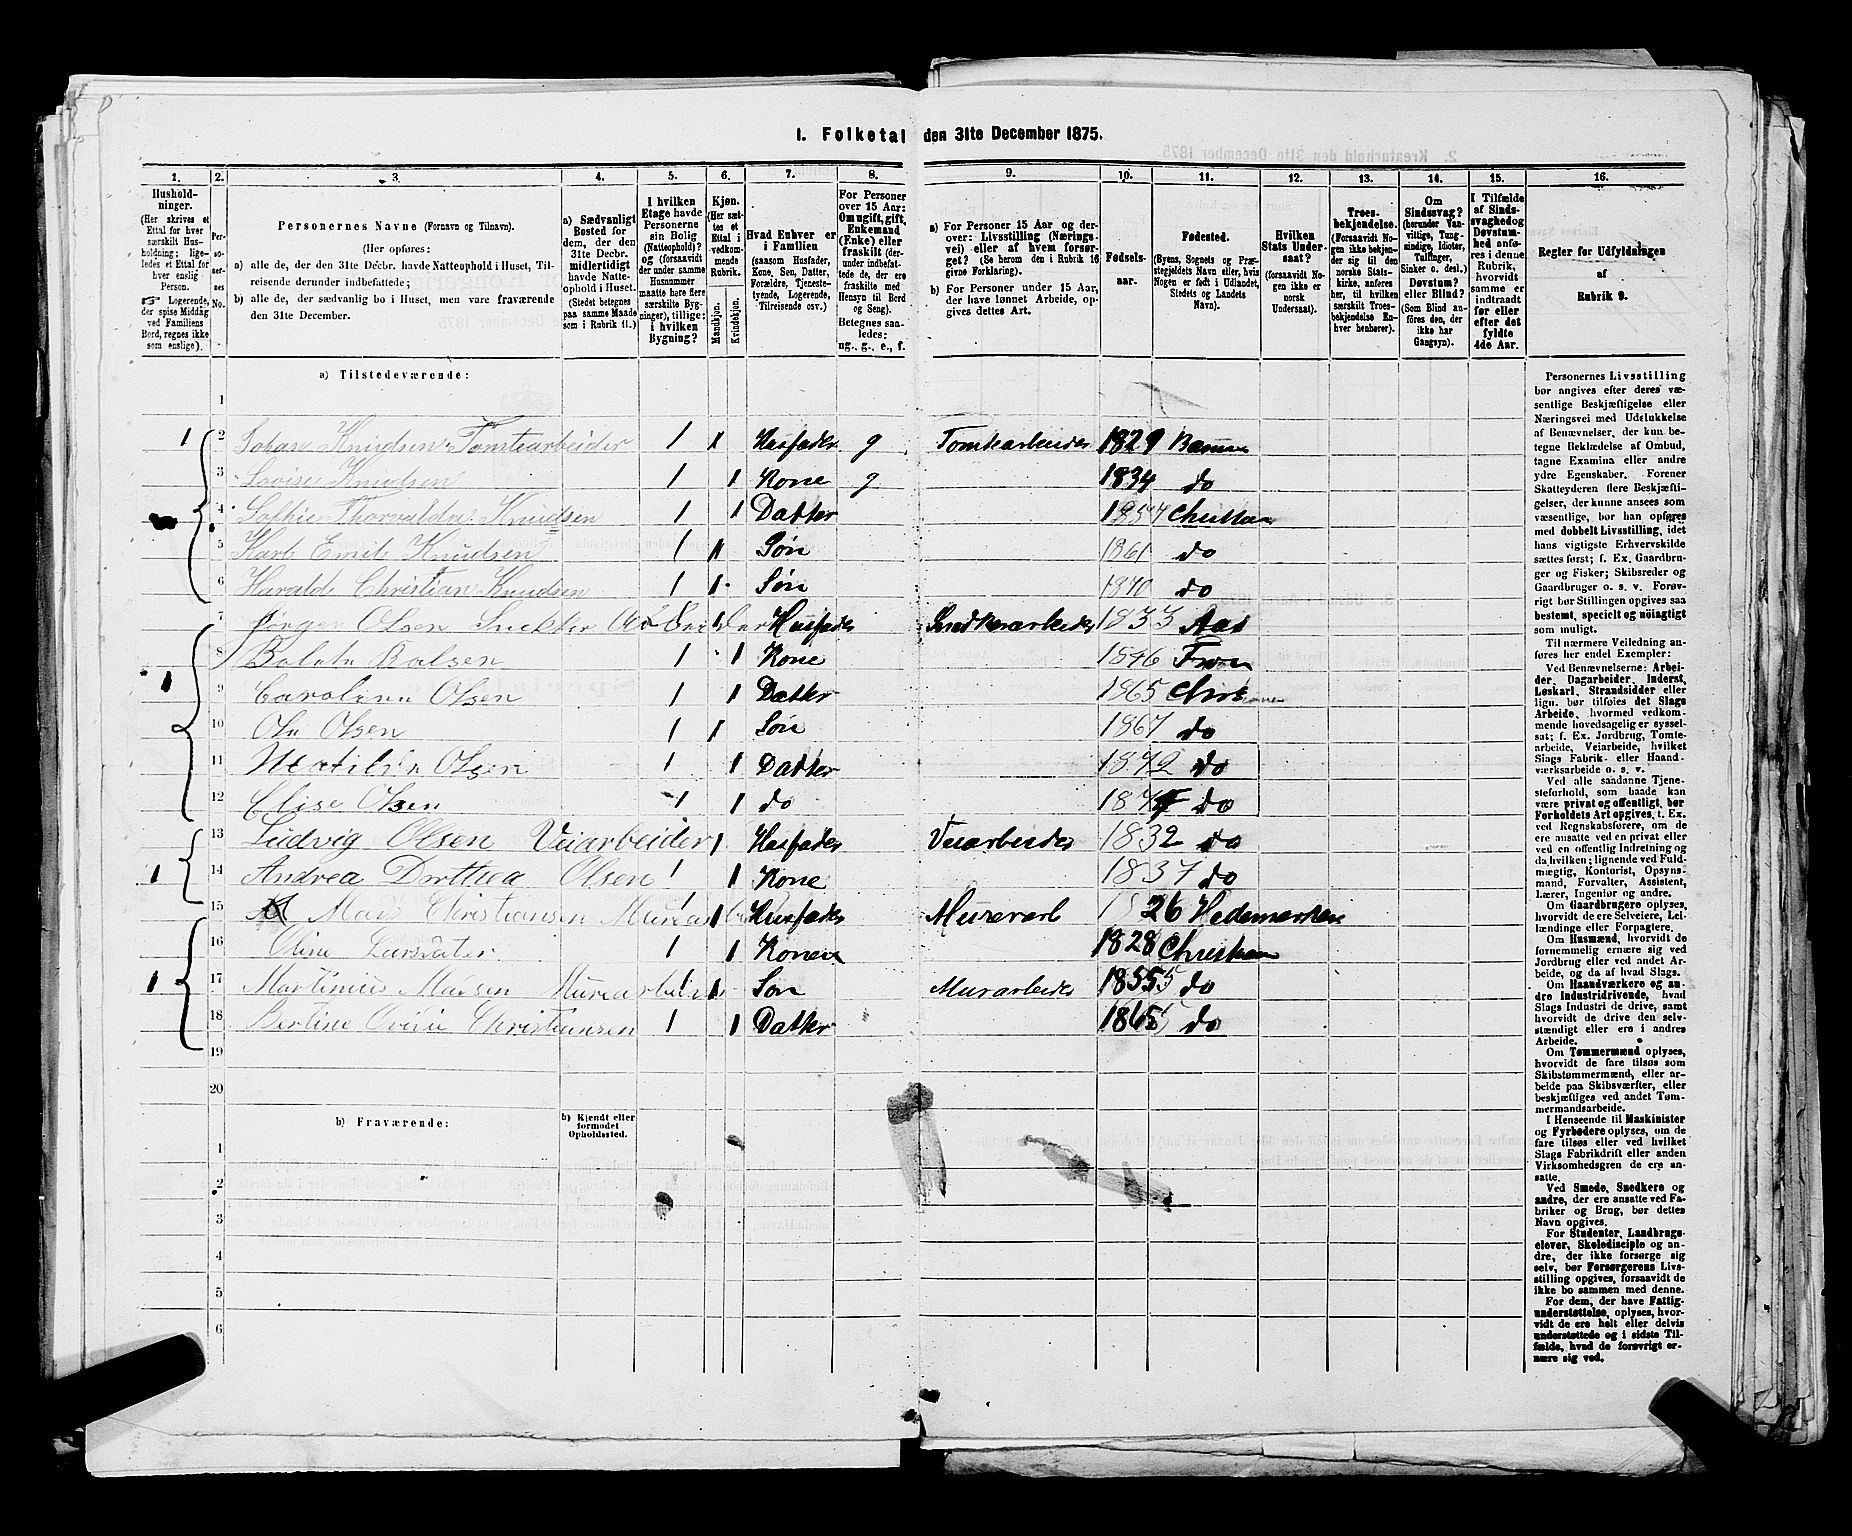 1. Folketal den 31te December 1875.
1. 2. 3. 4. 5. 6. 7. 8. 9. 10. 11. 12. 13. 14. 15. 16.
Hushold-
ninger.
(Her skrives et
Ettal for hver
særskilt Hus-
holdning; lige-
ledes et Ettal for
hver enslig
Person.
☞ Logerende,
der spise Middag
ved Familiens
Bord, regnes ikke
som enslige).
Per-
so-
ner-
nes
No.
Personernes Navne (Fornavn og Tilnavn).
(Her opføres:
a) alle de, der den 31te Decbr. havde Natteophold i Huset, Til-
reisende derunder indbefattede;
b) alle de, der sædvanlig bo i Huset, men vare fraværende
den 31te December.
a) Sædvanligt
Bosted for
dem, der den
31te Decbr.
midlertidigt
havde Natte-
ophold i Huset.
(Stedet betegnes
paa samme Maade
som i Rubrik 11.)
I hvilken
Etage havde
Personerne
sin Bolig
(Natteophold)?
og (forsaavidt
der under samme
Husnummer
maatte høre flere
særskilte Byg-
ninger), tillige:
i hvilken
Bygning?
Kjøn.
(Her sæt-
tes et
Ettal i
vedkom-
mende
Rubrik.
Mandkjøn.
Kvindekjøn.
Hvad Enhver er
i Familien
(saasom Husfader,
Kone, Søn, Datter,
Forældre, Tjeneste-
tyende, Logerende,
Tilreisende osv.)
For Personer
over 15 Aar:
Om ugift, gift,
Enkemand
(Enke) eller
fraskilt (der-
under indbefat-
tede de, der ere
fraskilte med
Hensyn til Bord
og Seng).
Betegnes saa-
ledes:
ug., g., e., f.
a) For Personer 15 Aar og der-
over: Livsstilling (Nærings-
vei) eller af hvem forsør-
get? (Se herom den i Rubrik 16
givne Forklaring).
b) For Personer under 15 Aar,
der have lønnet Arbeide, op-
gives dettes Art.
Fødsels-
aar.
Fødested.
(Byens, Sognets og Præ-
stegjeldets Navn eller, hvis
Nogen er født i Udlandet,
Stedets og Landets
Navn).
Hvilken
Stats Under-
saat?
(forsaavidt No-
gen ikke er
norsk
Undersaat).
Troes-
bekjendelse.
(Forsaavidt No-
gen ikke bekjen-
der sig til den
norske Stats-
kirke, anføres
her, til hvilken
særskilt Troes-
bekjendelse En-
hver henhører).
Om
Sindssvag?
(herunder Van-
vittige, Tung-
sindige, Idioter,
Tullinger,
Sinker o. desl.)
Døvstum?
eller Blind?
(Som Blind an-
føres den, der
ikke har
Gangsyn).
I Tilfælde
af Sinds-
svaghed og
Døvstum-
hed anfø-
res i denne
Rubrik,
hvorvidt
samme er
indtraadt
før eller
efter det
fyldte
4de Aar.
Regler for Udfyldningen
af
Rubrik 9.
a) Tilstedeværende:
1
1 2 Johan Knudsen Tomtearbeider 1 1 Husfader g Tomtearbeider 1829
3 Lovise Knudsen 1 1 Kone g 1834 do
4 Sofhie Thorvalda Knudsen 1 1 Datter
5 Karl Emil Knudsen 1 1 Søn 1861 do
6 Harald Christian Knudsen 1 1 Søn do
7 Jørgen Olsen 1 Husfader 1833 Aas
1 8 1 1 Kone 1846
9 Caroline Olsen 1 1 Datter 1865
10 Ole Olsen 1 1 Søn 1867 do
11 Olsen 1 1 Datter 1872 do
12 Elise Olsen 1 1 do do
13 Ludvig Olsen Veiarbeider 1 Husfader Veiarbeider 1832 do
1 14 Andrea Dorthea Olsen 1 1 Kone 1837 do
15 Mads Christiansen 1 1 Husfader Murerarb 1826 Hedemarken
16 Oline Larsdater 1 1 Konen 1828
1 17 Martinius Madsen 1 1 Søn Murarbeider 1855 do
18 Christiansen 1 1 Datter 1865 do
19
20
b) Fraværende:
b) Kjendt eller
formodet
Opholdssted.
1
2
3
4
5
6
Personernes Livsstilling
bør angives efter deres væ-
sentlige Beskjæftigelse eller
Næringsvei med Udelukkelse
af Benævnelser, der kun be-
tegne Beklædelse af Ombud,
tagne Examina eller andre
ydre Egenskaber. Forener
Skatteyderen flere Beskjæfti-
gelser, der kunne ansees som
væsentlige, bør han opføres
med dobbelt Livsstilling, idet
hans vigtigste Erhvervskilde
sættes først; f. Ex. Gaardbru-
ger og Fisker; Skibsreder og
Gaardbruger o. s. v. Forøv-
rigt bør Stillingen opgives saa
bestemt, specielt og nøiagtigt
som muligt.
Til nærmere Veiledning an-
føres her endel Exempler:
Ved Benævnelserne: Arbei-
der, Dagarbeider, Inderst,
Løskarl, Strandsidder eller
lign. bør tilføies det Slags
Arbeide, hvormed vedkom-
mende hovedsagelig er syssel-
sat; f. Ex. Jordbrug, Tomte-
arbeide, Veiarbeide, hvilket
Slags Fabrik- eller Haand-
værksarbeide o. s. v.
Ved alle saadanne Tjene-
steforhold, som baade kan
være privat og offentligt, bør
Forholdets Art opgives, t. Ex.
ved Regnskabsførere, om de
ere ansatte ved en privat eller
ved en offentlig Indretning og
da hvilken; lignende ved Fuld-
mægtig, Kontorist, Opsyns-
mand, Forvalter, Assistent,
Lærer, Ingeniør og andre.
Om Gaardbrugere oplyses,
hvorvidt de ere Selveiere, Lei-
lændinge eller Forpagtere.
Om Husmænd, hvorvidt de
fornemmelig ernære sig ved
Jordbrug eller ved andet Ar-
beide, og da af hvad Slags.
Om Haandværkere og an-
dre Industridrivende, hvad
Slags Industri de drive, samt
hvorvidt de drive den selv-
stændigt eller ere i andres
Arbeide.
Om Tømmermænd oplyses,
hvorvidt de fare tilsøs som
Skibstømmermænd, eller ar-
beide paa Skibsværfter, eller
beskjæftiges ved andet Tøm-
mermandsarbeide.
I Henseende til Maskinister
og Fyrbødere oplyses, om de
fare tilsøs eller ved hvilket
Slags Fabrikdrift eller anden
Virksomhedsgren de ere an-
satte.
Ved Smede, Snedkere og
andre, der ere ansatte ved Fa-
briker og Brug, bør dettes
Navn opgives.
For Studenter, Landbrugs-
elever, Skoledisciple og an-
dre, der ikke forsørge sig
selv, bør Forsørgerens Livs-
stilling opgives, forsaavidt de
ikke bo sammen med denne.
For dem, der have Fattig-
understøttelse, oplyses, hvor-
vidt de ere helt eller delvis
understøttede og i sidste Til-
fælde, hvad de forøvrigt er-
nære sig ved.